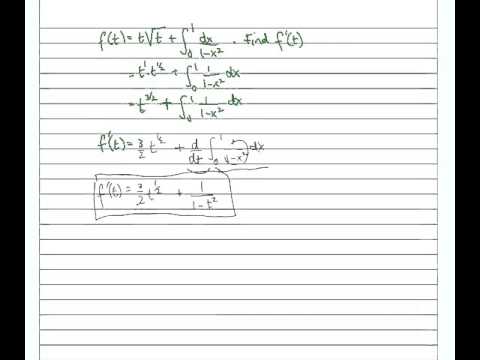 f(t) = t√t + ∫₀¹ dx/(1-x²) . Find f'(t)
= t¹·t^(1/2) + ∫₀¹ 1/(1-x²) dx
= t^(3/2) + ∫₀¹ 1/(1-x²) dx
f'(t) = 3/2 t^(1/2) + d/dt ∫₀¹ 1/(1-x²) dx
f'(t) = 3/2 t^(1/2) + 1/(1-t²)